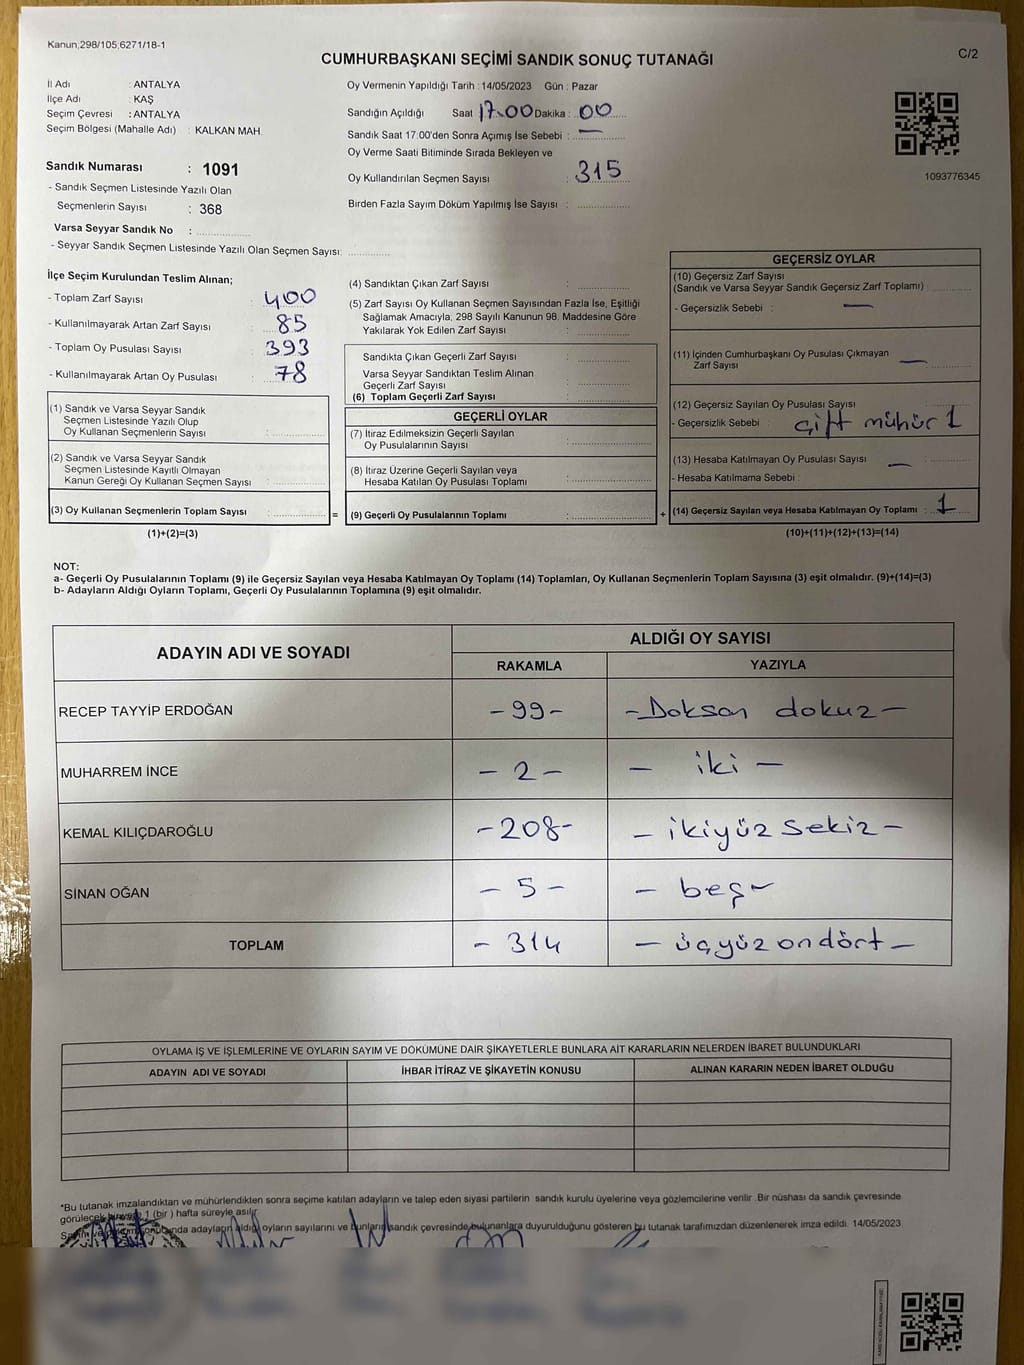 Kanun;298/105;6271/18-1
C/2
CUMHURBAŞKANI SEÇİMİ SANDIK SONUÇ TUTANAĞI
İl Adı : ANTALYA
İlçe Adı : KAŞ
Seçim Çevresi : ANTALYA
Seçim Bölgesi (Mahalle Adı) : KALKAN MAH.
Sandık Numarası : 1091
- Sandık Seçmen Listesinde Yazılı Olan
Seçmenlerin Sayısı : 368
Varsa Seyyar Sandık No :
- Seyyar Sandık Seçmen Listesinde Yazılı Olan Seçmen Sayısı:
Oy Vermenin Yapıldığı Tarih : 14/05/2023 Gün : Pazar
Sandığın Açıldığı Saat 17.00 Dakika : 00
Sandık Saat 17:00'den Sonra Açımış İse Sebebi : —
Oy Verme Saati Bitiminde Sırada Bekleyen ve
Oy Kullandırılan Seçmen Sayısı : 315
Birden Fazla Sayım Döküm Yapılmış İse Sayısı :
1093776345
İlçe Seçim Kurulundan Teslim Alınan;
- Toplam Zarf Sayısı : 400
- Kullanılmayarak Artan Zarf Sayısı : 85
- Toplam Oy Pusulası Sayısı : 393
- Kullanılmayarak Artan Oy Pusulası : 78
(1) Sandık ve Varsa Seyyar Sandık
Seçmen Listesinde Yazılı Olup
Oy Kullanan Seçmenlerin Sayısı :
(2) Sandık ve Varsa Seyyar Sandık
Seçmen Listesinde Kayıtlı Olmayan
Kanun Gereği Oy Kullanan Seçmen Sayısı :
(3) Oy Kullanan Seçmenlerin Toplam Sayısı :
(1)+(2)=(3)
=
(4) Sandıktan Çıkan Zarf Sayısı :
(5) Zarf Sayısı Oy Kullanan Seçmen Sayısından Fazla İse, Eşitliği
Sağlamak Amacıyla; 298 Sayılı Kanunun 98. Maddesine Göre
Yakılarak Yok Edilen Zarf Sayısı :
Sandıkta Çıkan Geçerli Zarf Sayısı :
Varsa Seyyar Sandıktan Teslim Alınan
Geçerli Zarf Sayısı :
(6) Toplam Geçerli Zarf Sayısı :
GEÇERLİ OYLAR
(7) İtiraz Edilmeksizin Geçerli Sayılan
Oy Pusulalarının Sayısı :
(8) İtiraz Üzerine Geçerli Sayılan veya
Hesaba Katılan Oy Pusulası Toplamı :
(9) Geçerli Oy Pusulalarının Toplamı :
+
GEÇERSİZ OYLAR
(10) Geçersiz Zarf Sayısı
(Sandık ve Varsa Seyyar Sandık Geçersiz Zarf Toplamı) :
- Geçersizlik Sebebi : —
(11) İçinden Cumhurbaşkanı Oy Pusulası Çıkmayan
Zarf Sayısı : —
(12) Geçersiz Sayılan Oy Pusulası Sayısı :
- Geçersizlik Sebebi : Çift mühür 1
(13) Hesaba Katılmayan Oy Pusulası Sayısı : —
- Hesaba Katılmama Sebebi :
(14) Geçersiz Sayılan veya Hesaba Katılmayan Oy Toplamı : 1
(10)+(11)+(12)+(13)=(14)
NOT:
a- Geçerli Oy Pusulalarının Toplamı (9) ile Geçersiz Sayılan veya Hesaba Katılmayan Oy Toplamı (14) Toplamları, Oy Kullanan Seçmenlerin Toplam Sayısına (3) eşit olmalıdır. (9)+(14)=(3)
b- Adayların Aldığı Oyların Toplamı, Geçerli Oy Pusulalarının Toplamına (9) eşit olmalıdır.
ADAYIN ADI VE SOYADI
ALDIĞI OY SAYISI
RAKAMLA YAZIYLA
RECEP TAYYİP ERDOĞAN - 99 - - Doksan dokuz -
MUHARREM İNCE - 2 - - iki -
KEMAL KILIÇDAROĞLU - 208 - - ikiyüz sekiz -
SİNAN OĞAN - 5 - - beş -
TOPLAM - 314 - üçyüz ondört -
OYLAMA İŞ VE İŞLEMLERİNE VE OYLARIN SAYIM VE DÖKÜMÜNE DAİR ŞİKAYETLERLE BUNLARA AİT KARARLARIN NELERDEN İBARET BULUNDUKLARI
ADAYIN ADI VE SOYADI İHBAR İTİRAZ VE ŞİKAYETİN KONUSU ALINAN KARARIN NEDEN İBARET OLDUĞU
*Bu tutanak imzalandıktan ve mühürlendikten sonra seçime katılan adayların ve talep eden siyasi partilerin sandık kurulu üyelerine veya gözlemcilerine verilir. Bir nüshası da sandık çevresinde
görülecek bir yere 1 (bir) hafta süreyle asılır.
adayların aldığı oyların sayılarını ve bunların sandık çevresinde bulunanlara duyurulduğunu gösteren bu tutanak tarafımızdan düzenlenerek imza edildi. 14/05/2023